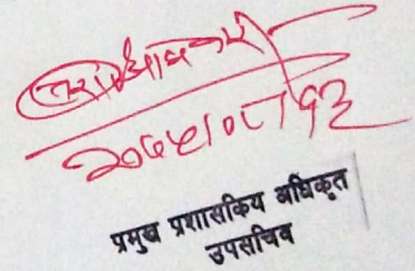 २०७५।०८।१३
प्रमुख प्रशासकिय अधिकृत
उपसचिव